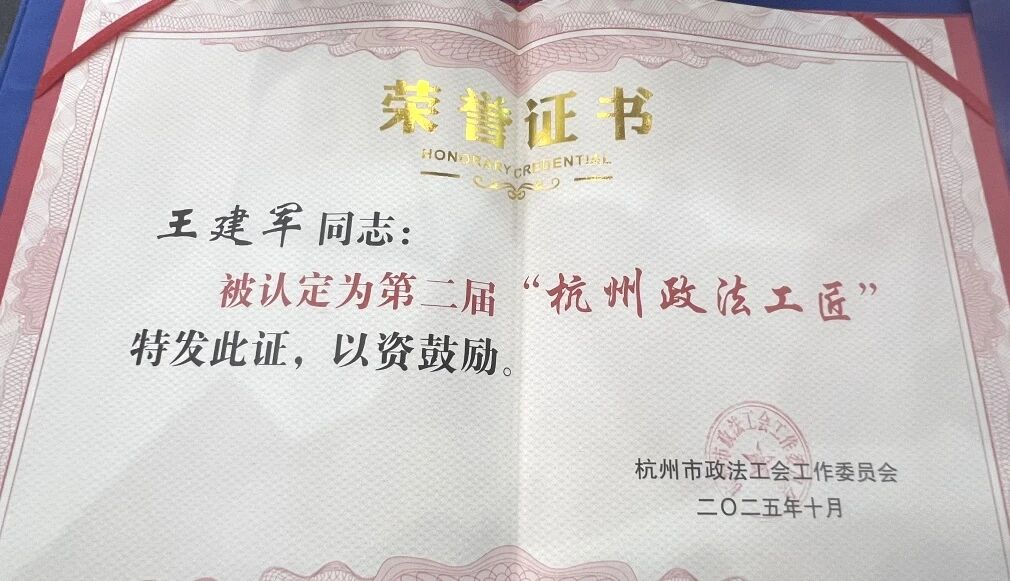 荣誉证书
HONORARY CREDENTIAL
王建军同志：
被认定为第二届“杭州政法工匠”
特发此证，以资鼓励。
市政法工会工作委
杭州市政法工会工作委员会
二〇二五年十月